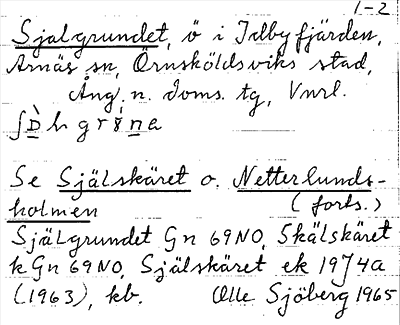 1-2
Sjalgrundet, ö i Idbyfjärden,
Arnäs sn, Örnsköldsviks stad,
Ång. n. doms. tg, Vnrl.
Se Själskäret o. Netterlunds-
holmen (forts.)
Själgrundet Gn 69NO, Skälskäret
k Gn 69NO, Själskäret ek 19J4a
(1963), kb. Olle Sjöberg 1965